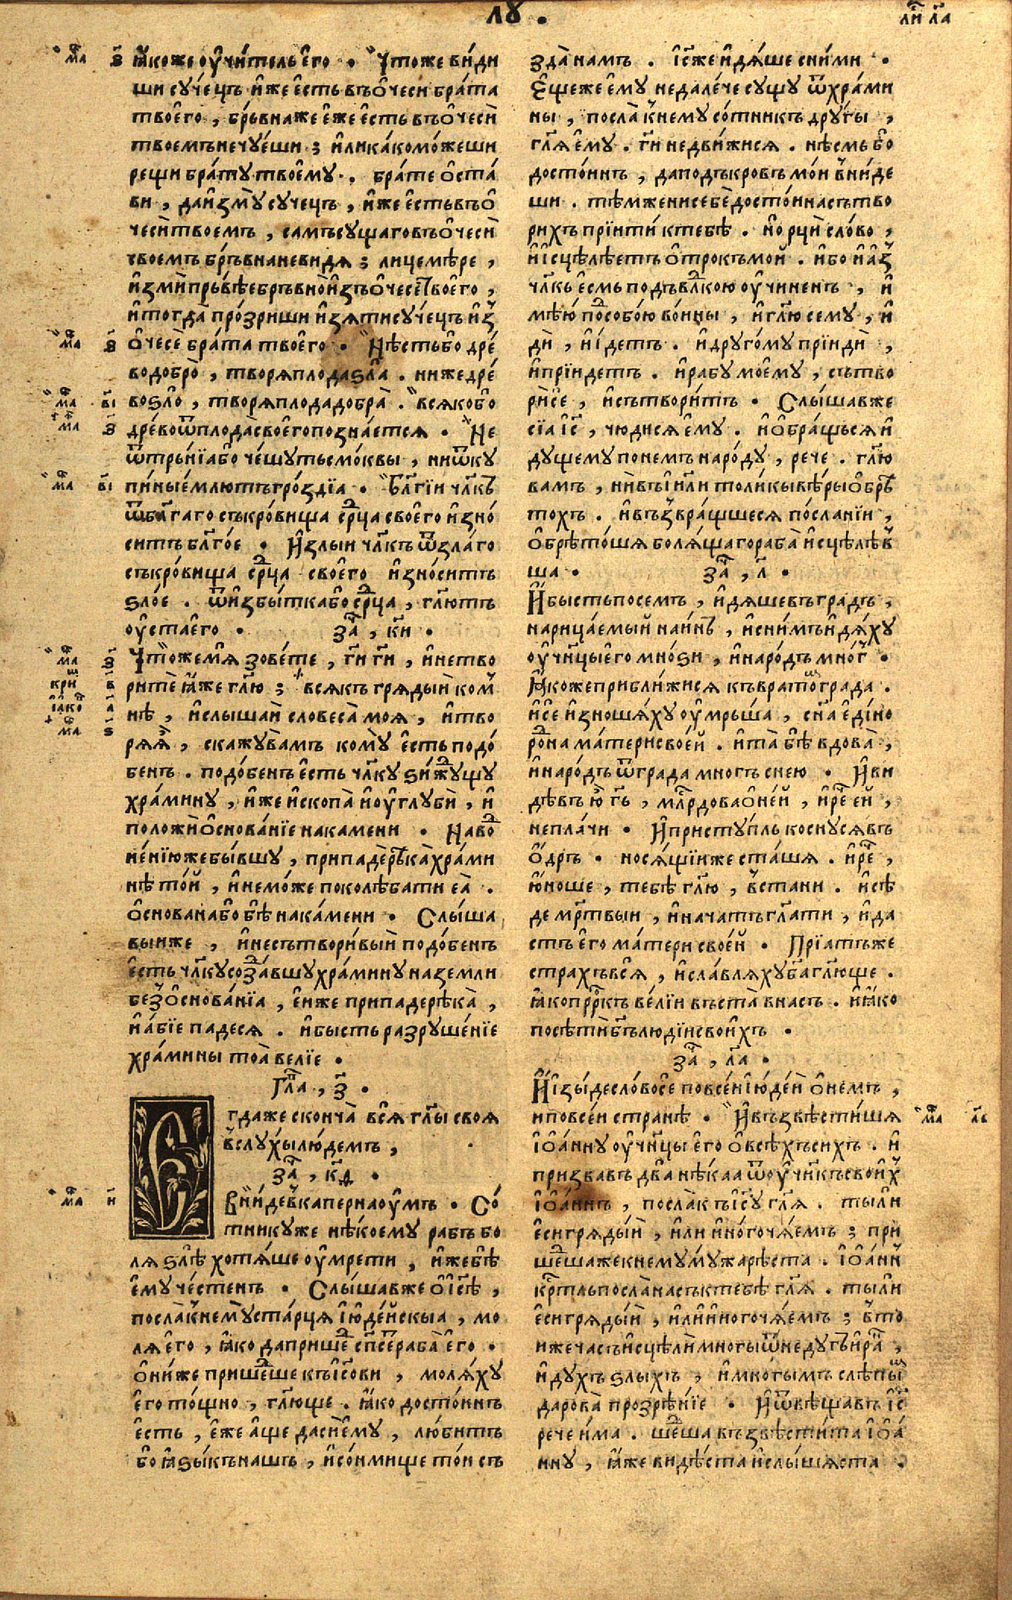 лꙋ .
ли҃ л҃а
ꙗ҆́коже ᲂу҆чи́тель є҆го̀ . Что́же ви́ди
ши сꙋче́цъ и҆́же є҆́сть въ ѻ҆чесѝ бра́та
твоегѡ̀ , брьвна́же є҆́же є҆́сть въ ѻ҆чесѝ
твоемъ нечꙋ́еши ; и҆ли ка́ко мо́жеши
рещи бра́тꙋ твоемꙋ . бра́те ѻ҆ста́
ви , да и҆змꙋ̀ сꙋче́цъ , и҆́же є҆́сть въ ѻ҆
чесѝ твоемъ , са́мъ сꙋщаго въ ѻ҆чесѝ
твоемъ брьвна не ви́дя ; лицемѣ́ре ,
и҆змѝ прьвѣ́е брьвно̀ и҆зъ ѻ҆чесѐ твоегѡ̀ ,
и҆ тогда̀ про́зриши и҆зя́ти сꙋче́цъ и҆з
ѻ҆чесѐ бра́та твоего̀ . Нѣ́сть бо дре́
во добро̀ , творя̀ плода̀ ѕла̀ . ниже дре́
во ѕло̀ , творя̀ плода̀ добра̀ . всяко бо
дре́во ѿ плода̀ своегѡ̀ познае́тся . Не
ѿ тръ́нїа бо че́шꙋть смо́квы , ни ѿ кꙋ
пины̀ є҆́млютъ гро́здїа . Бл҃гі́и чл҃къ
ѿ бл҃га́го съкро́вища ср҃ца своегѡ̀ и҆зно́
ситъ бл҃го́е . И҆ злы́и чл҃къ ѿ зла́го
съкро́вища ср҃ца своегѡ̀ и҆зно́ситъ
ѕло́е . ѿ и҆збы́тка бо ср҃ца , гл҃ютъ
ᲂу҆ста̀ є҆го̀ . за҃ , к҃и .
Что́ же мя̀ зове́те , гн҃и гн҃и , и҆ не тво
ритѐ ꙗ҆́же гл҃ю ; всякъ гряды́й ко м
нѣ̀ , и҆ слы́шай словеса̀ моя̀ , и҆ тво
ряѧ̀ , скажꙋ̀ ва́мъ комꙋ̀ є҆́сть подо́
бенъ . подо́бенъ є҆́сть чл҃кꙋ ѕи́ждꙋщꙋ
хра́минꙋ , и҆́же и҆скопа̀ и҆ ᲂу҆глꙋбѝ , и҆
положѝ ѻ҆снова́нїе на ка́мени . Наво
не́нїю же бы́вшꙋ , припадѐ рѣка̀ хра́ми
нѣ то́й , и҆ не мо́же поколѣба́ти є҆а̀ .
ѻ҆снова́на бо бѣ̀ на ка́мени . Слы́ша
выи же , и҆ не сътвори́вый подо́бенъ
є҆́сть чл҃кꙋ созда́вшꙋ хра́минꙋ на землѝ
без ѻ҆снова́нїа , є҆́йже припадѐ рѣка̀ ,
и҆ а҆́бїе паде́ся . и҆ бы́сть разрꙋше́нїе
хра́мины тоа̀ ве́лїе .
Гла҃ , з҃ .
Егдаже сконча̀ вся̀ гл҃ы своя̀
в слꙋ́хы лю́демъ ,
за҃ , к҃ѳ .
Вни́де в каперна́ᲂумъ . Со́
тникꙋ же нѣ́коемꙋ ра́бъ бо
ля̀ ѕлѣ̀ хотя́ше ᲂу҆мре́ти , и҆́же бѣ̀
є҆мꙋ̀ че́стенъ . Слы́шавже ѻ҆ і҆с҃ѣ ,
посла̀ к немꙋ̀ ста́рця і҆юде́йскыа , мо
ля̀ є҆го̀ , ꙗ҆́ко да прише́д сп҃се́ раба̀ є҆го̀ .
ѻ҆ни́же прише́дше къ і҆с҃ови , моля́хꙋ
є҆го̀ то́щно , гл҃юще . ꙗ҆́ко досто́инъ
є҆́сть , є҆́же а҆́ще да́си є҆мꙋ̀ , лю́битъ
бо ꙗ҆зы́къ на́шъ , и҆ со́нмище то́и съ
зда̀ на́мъ . і҆с҃ же и҆дя́ше с ни́ми .
Е҆ще́же є҆мꙋ̀ недале́че сꙋ́щꙋ ѿ хра́ми
ны , посла̀ к немꙋ̀ со́тникъ дрꙋ́гы ,
гл҃я є҆мꙋ̀ . гн҃и не дви́жися . нѣ́смь бо
досто́инъ , да под кро́въ мо́и вни́де
ши . тѣ́мже ни себѐ досто́ина сътво
ри́хъ прїитѝ к тебѣ̀ . но̀ рцѝ сло́во ,
и҆ и҆сцѣлѣ́етъ ѻ҆́трокъ мо́й . и҆́бо и҆ а҆́з
чл҃къ є҆́смь подъ вл҃кою ᲂу҆чине́нъ , и҆
мѣ́ю под собо́ю во́ины , и҆ гл҃ю семꙋ̀ , и҆
дѝ , и҆ и҆́детъ . и҆ дрꙋго́мꙋ прїидѝ ,
и҆ прїи́детъ . и҆ рабꙋ̀ моемꙋ̀ , сътво
рѝ сѐ , и҆ сътвори́тъ . Слы́шавже
сїа̀ і҆с҃ , чюди́ся є҆мꙋ̀ . и҆ ѻ҆бра́щься и҆
дꙋщемꙋ по не́мъ наро́дꙋ , рече . гл҃ю
ва́мъ , ни въ і҆и҃ли толи́кы вѣ́ры ѻ҆брѣ
тохъ . и҆ възвра́щшеся по́сланїи ,
ѻ҆брѣто́шя боля́щаго раба̀ и҆сцѣлѣ́в
ша . за҃ , л҃ .
И҆ бы́сть по се́мъ , и҆дя́ше въ гра́дъ ,
нарица́емый наи́нъ , и҆ с ни́мъ и҆дя́хꙋ
ᲂу҆чн҃цы є҆го̀ мно́ѕи , и҆ наро́дъ мно́г .
Ꙗ҆́коже прибли́жися къ врато́мъ града .
и҆ сѐ и҆зноша́хꙋ ᲂу҆мръ́ша , сн҃а є҆ди́но
ро́дна ма́тери свое́й . и҆ та̀ бѣ̀ вдова̀ ,
и҆ наро́дъ ѿ града мно́гъ с не́ю . И҆ ви
дѣвъ ю҆̀ г҃ь , мл҃рдова ѻ҆ не́й , и҆ речѐ е́й ,
не пла́чи . И҆ пристꙋ́пль коснꙋ́ся въ
ѻ҆дръ . нося́щїи же ста́шя . и҆ речѐ ,
ю҆́ноше , тебѣ̀ гл҃ю , въста́ни . и҆ сѣ́
де мр҃твыи , и҆ нача́тъ гл҃ати , и҆ да
стъ є҆го̀ ма́тери свое́й . Прїа́тъ же
стра́хъ вся̀ , и҆ сла́вляхꙋ бг҃а гл҃юще .
ꙗ҆́ко прⷪ҇ркъ ве́лїи въста̀ в на́съ . и҆ ꙗ҆́ко
посѣтѝ бг҃ъ лю́дїи свои́хъ .
за҃ , л҃а .
И҆ и҆зы́де сло́во сѐ по все́и і҆юде́и ѻ҆ не́мъ ,
и по все́и странѣ̀ . И҆ възвѣсти́шя
і҆ѻа́ннꙋ ᲂу҆чн҃цы є҆го̀ ѻ҆ всѣ́хъ си́хъ . и҆
призва́въ два̀ нѣ́каа ѿ ᲂу҆чн҃къ свои́х
і҆ѻа́ннъ , посла̀ къ і҆с҃ꙋ гл҃я . ты́ ли
є҆сѝ гряды́й , и҆лѝ и҆но́го ча́емъ ; при
ше́дша же к немꙋ̀ мꙋ́жа рѣ́ста . і҆ѻа́нн
кр҃тль посла̀ на́съ к тебѣ̀ гл҃я . ты́ ли
є҆сѝ гряды́й , и҆лѝ и҆но́го ча́емъ ; в то
и же ча́съ и҆сцѣлѝ мно́гы ѿ недꙋ́гъ и҆ ра́н ,
и дꙋ́хъ ѕлы́хъ , и҆ мно́гымъ слѣпы́м
дарова̀ прозрѣ́нїе . И҆ ѿвѣща́въ і҆с҃
рече и҆́ма . ше́дша възвѣсти́та і҆ѻа́
ннꙋ , ꙗ҆́же ви́дѣста и҆ слы́шяста .